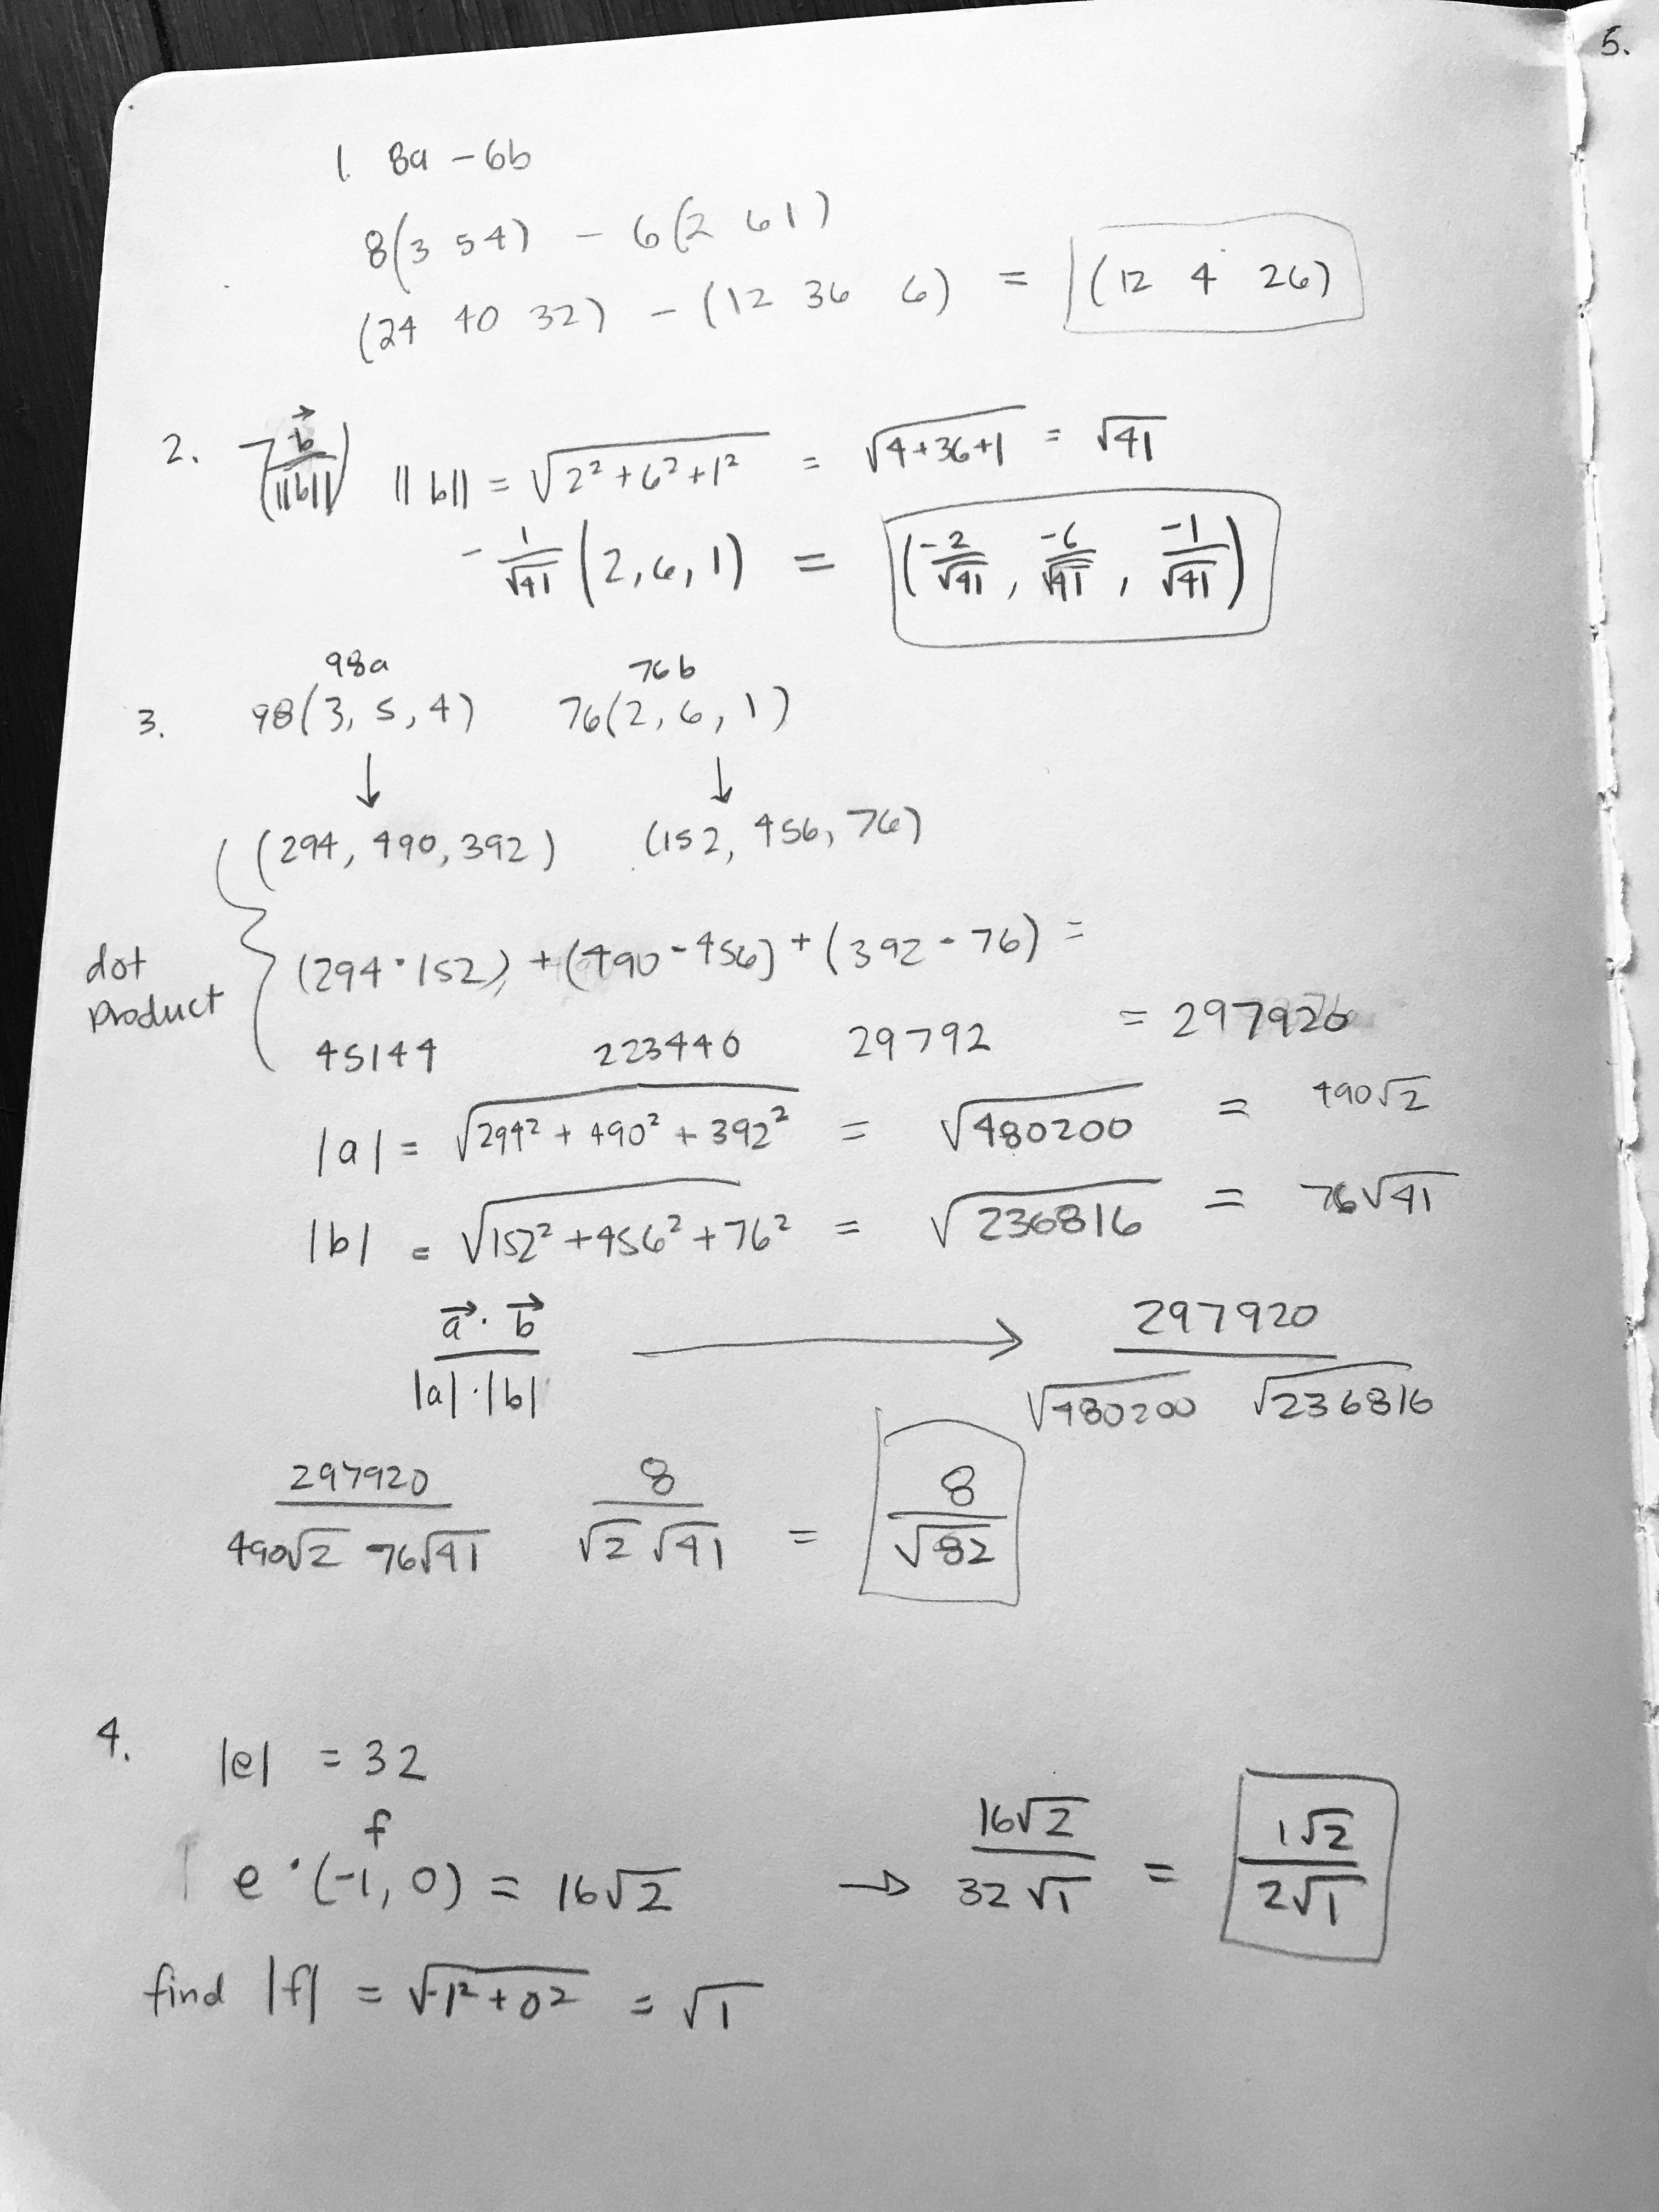 5.
1. 8a - 6b
8(3 5 4) - 6(2 6 1)
(24 40 32) - (12 36 6) = (12 4 26)
2. -(b⃗/||b||) ||b|| = √(2² + 6² + 1²) = √(4+36+1) = √41
- 1/√41 (2, 6, 1) = (-2/√41, -6/√41, -1/√41)
98a 76b
3. 98(3, 5, 4) 76(2, 6, 1)
↓ ↓
(294, 490, 392) (152, 456, 76)
dot product
(294 · 152) + (490 - 456) + (392 - 76) =
45144 223440 29792 = 297920
|a| = √(294² + 490² + 392²) = √480200 = 490√2
|b| = √(152² + 456² + 76²) = √236816 = 76√41
a⃗ · b⃗ / |a| · |b| → 297920 / √480200 √236816
297920 / 490√2 76√41 8 / √2 √41 = 8 / √82
4. |e| = 32
f
e · (-1, 0) = 16√2 → 16√2 / 32√1 = 1√2 / 2√1
find |f| = √(-1² + 0²) = √1